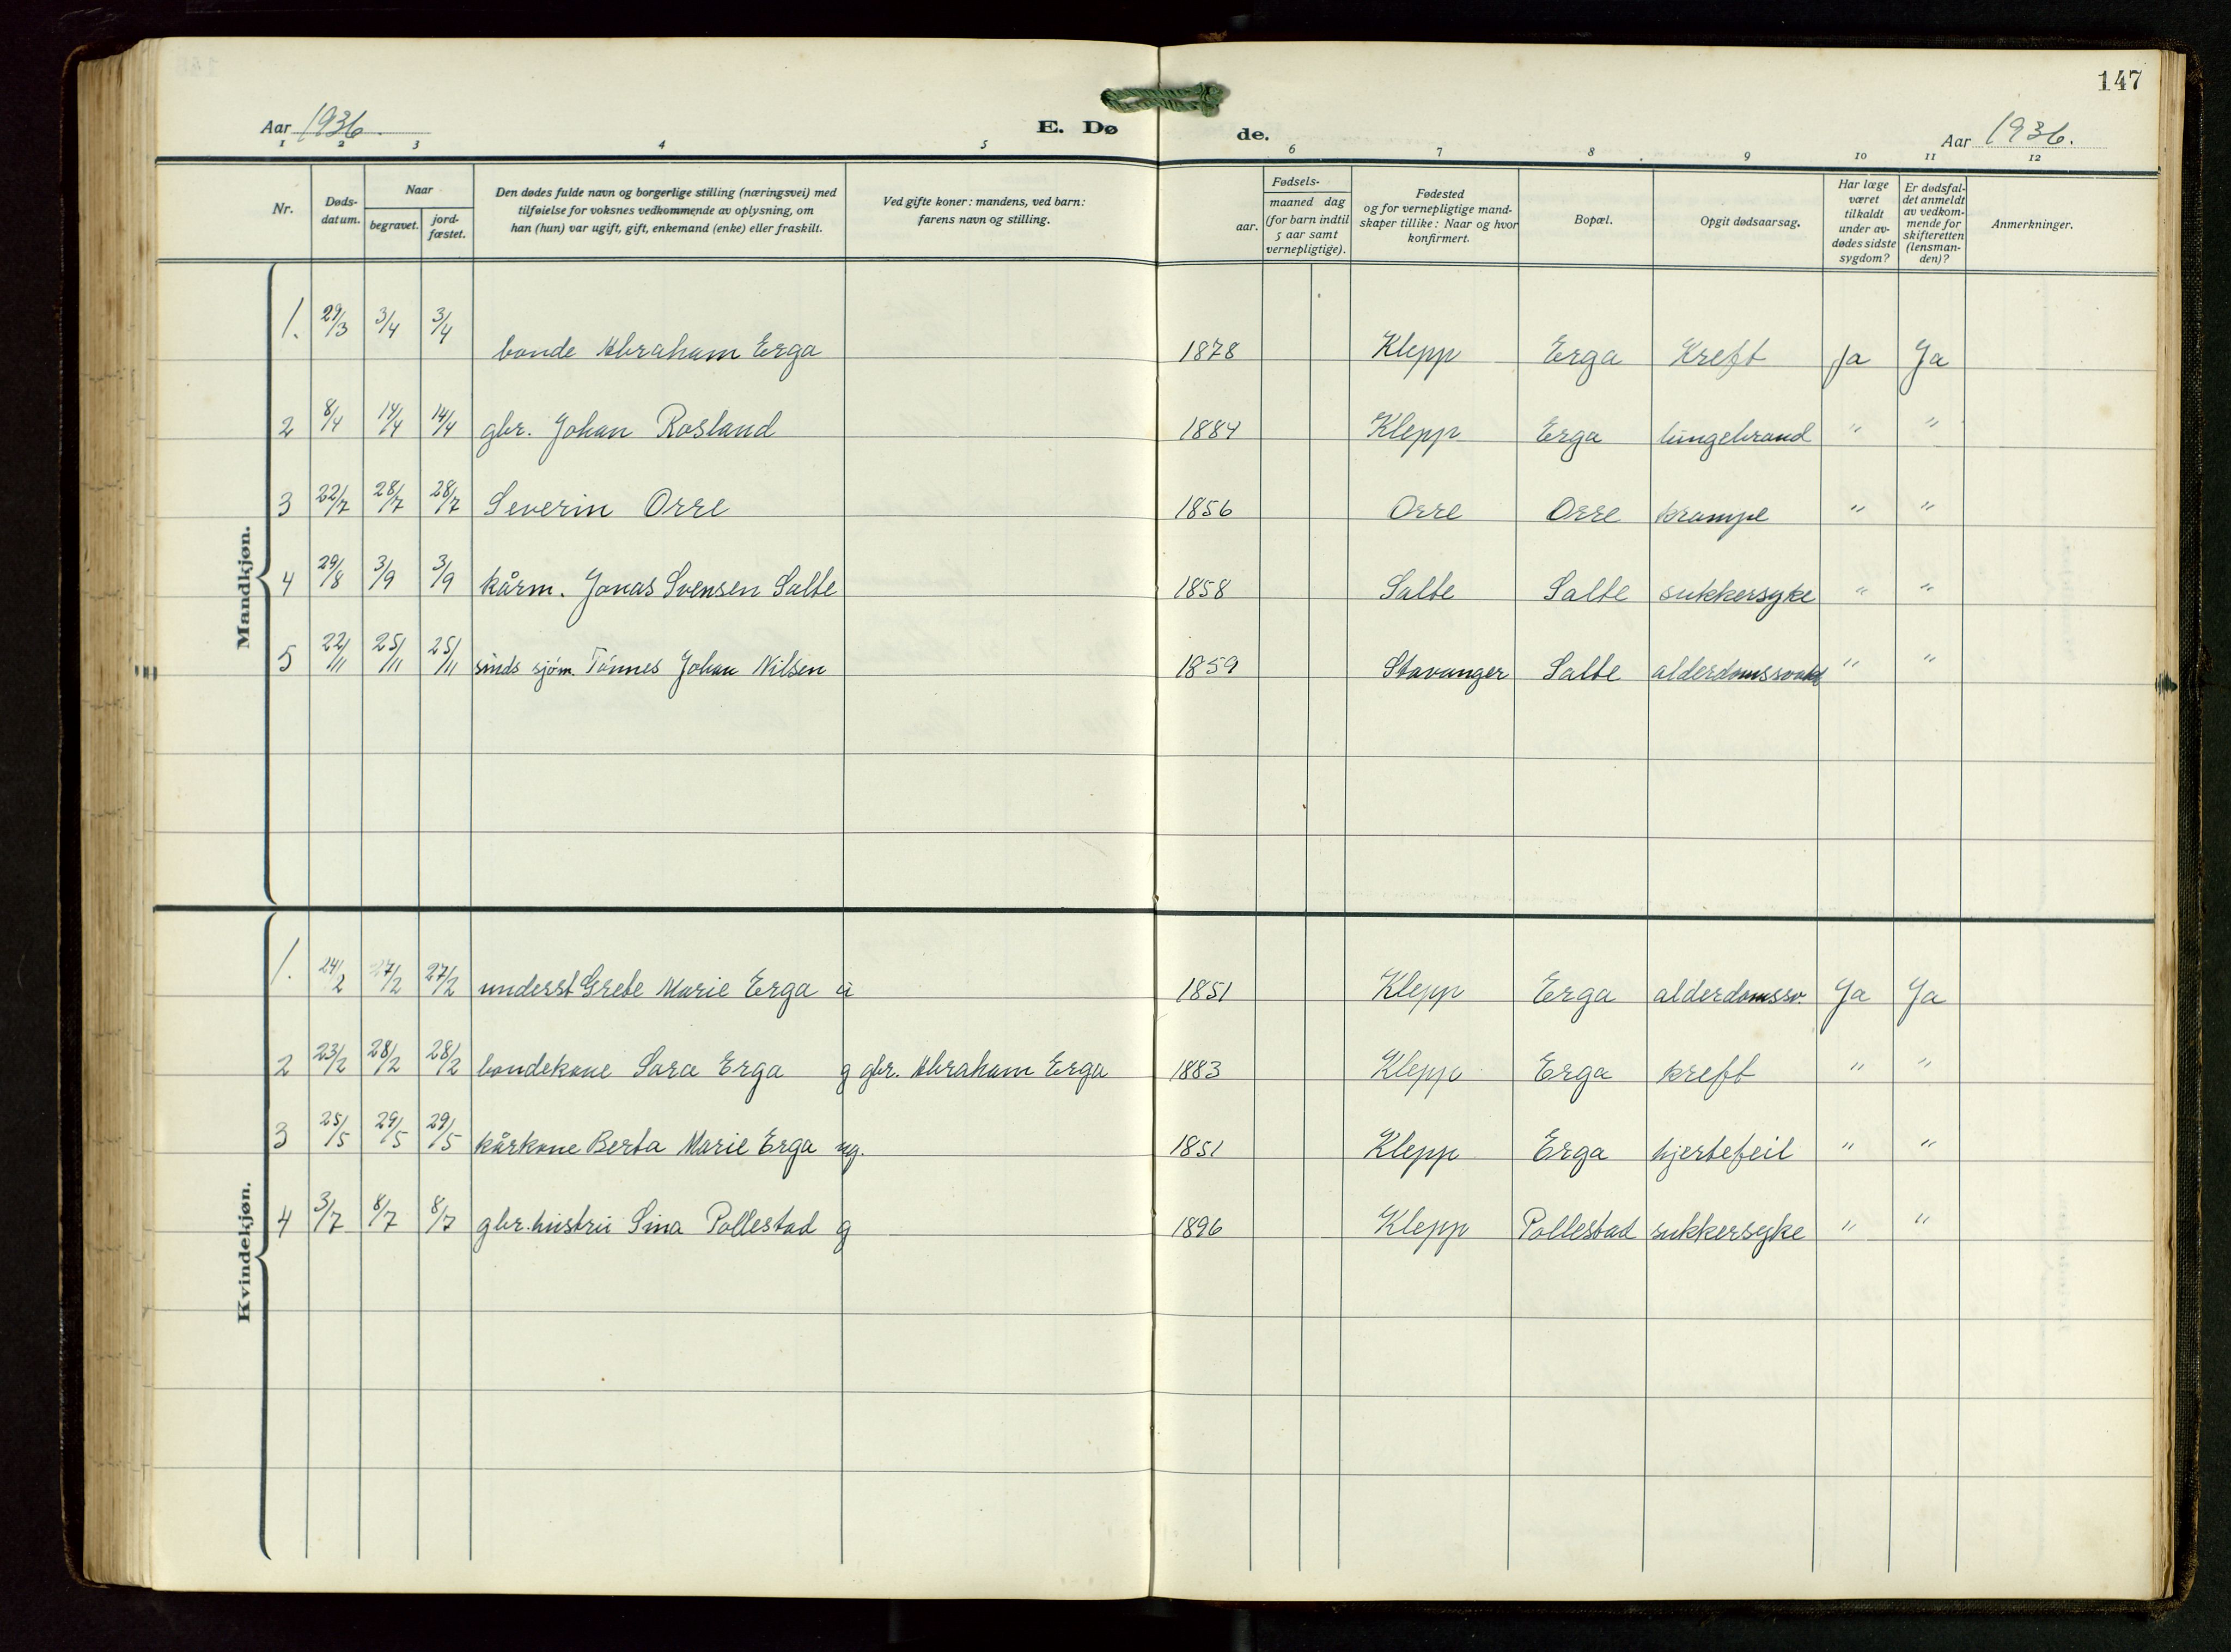 147
Aar 1936. E. Dø de. Aar 1936.
1 2 3 4 5 6 7 8 9 10 11 12
Nr. Døds-datum. Naar begravet. jord-fæstet. Den dødes fulde navn og borgerlige stilling (næringsvei) med tilføielse for voksnes vedkommende av oplysning, om han (hun) var ugift, gift, enkemand (enke) eller fraskilt. Ved gifte koner: mandens, ved barn: farens navn og stilling. Fødsels- aar. maaned dag (for barn indtil 5 aar samt vernepligtige). Fødested og for vernepligtige mand-skaper tillike: Naar og hvor konfirmert. Bopæl. Opgit dødsaarsag. Har læge været tilkaldt under av-dødes sidste sygdom? Er dødsfal-det anmeldt av vedkom-mende for skifteretten (lensman-den)? Anmerkninger.
Mandkjøn.
1. 29/3 3/4 3/4 bonde Abraham Erga 1878 Klepp Erga Kreft Ja Ja
2 8/4 14/4 14/4 gbr. Johan Rosland 1884 Klepp Erga lungebrand " "
3 22/7 28/7 28/7 Severin Orre 1856 Orre Orre krampe " "
4 29/8 3/9 3/9 kårm. Jonas Svensen Salte 1858 Salte Salte sukkersyke " "
5 22/11 25/11 25/11 sinds sjøm. Tønnes Johan Nilsen 1859 Stavanger Salte alderdomssvakh " "
Kvindekjøn.
1. 24/2 27/2 27/2 underst Grete Marie Erga a 1851 Klepp Erga alderdomssv. Ja Ja
2 23/2 28/2 28/2 bondekone Sara Erga g gbr. Abraham Erga 1883 Klepp Erga kreft " "
3 25/5 29/5 29/5 kårkone Berta Marie Erga ug. 1851 Klepp Erga hjertefeil " "
4 3/7 8/7 8/7 gbr. hustru Sina Pollestad g 1896 Klepp Pollestad sukkersyke " "